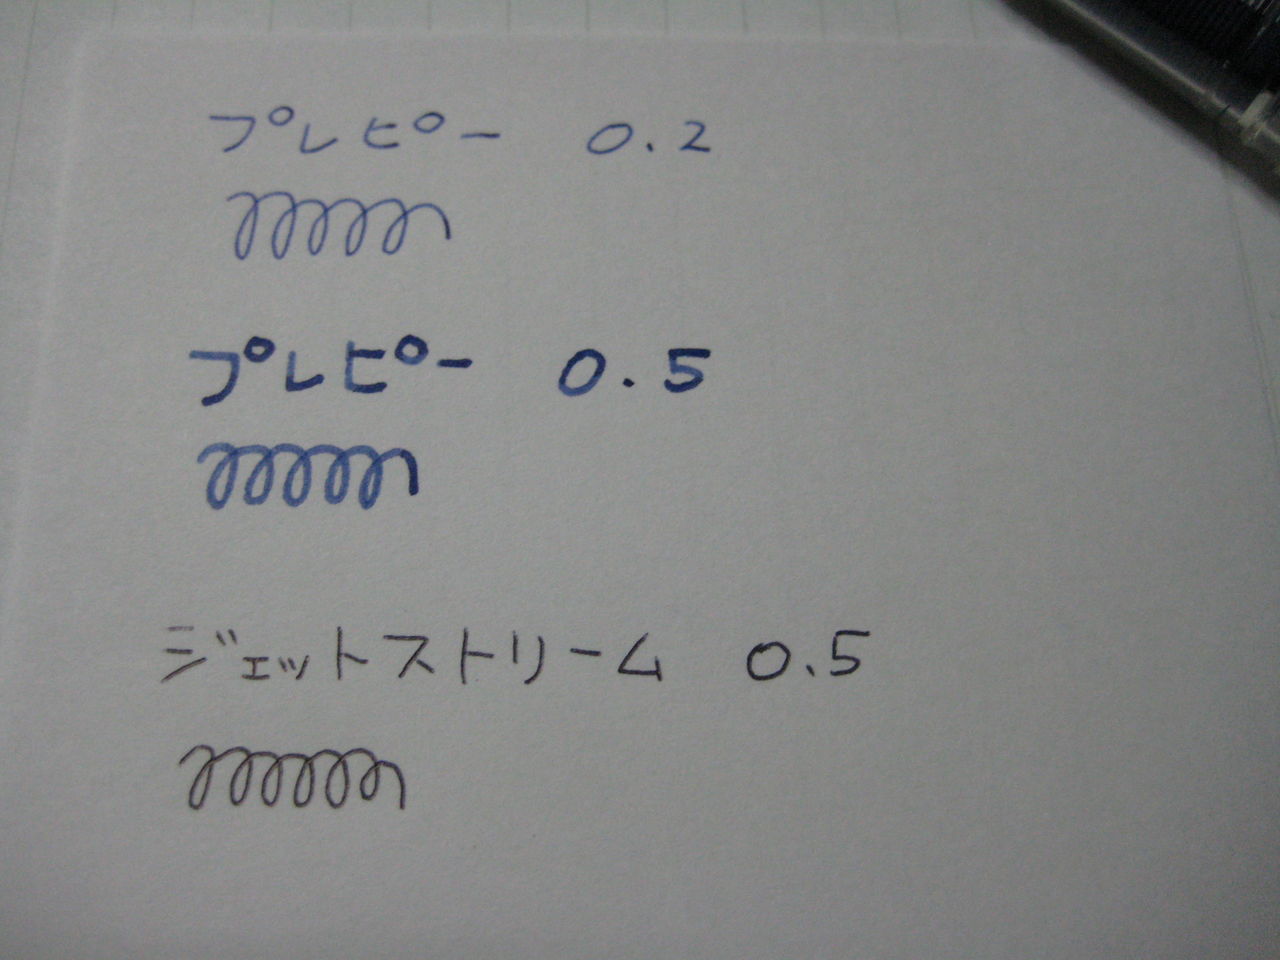 プレピー 0.2
プレピー 0.5
ジェットストリーム 0.5